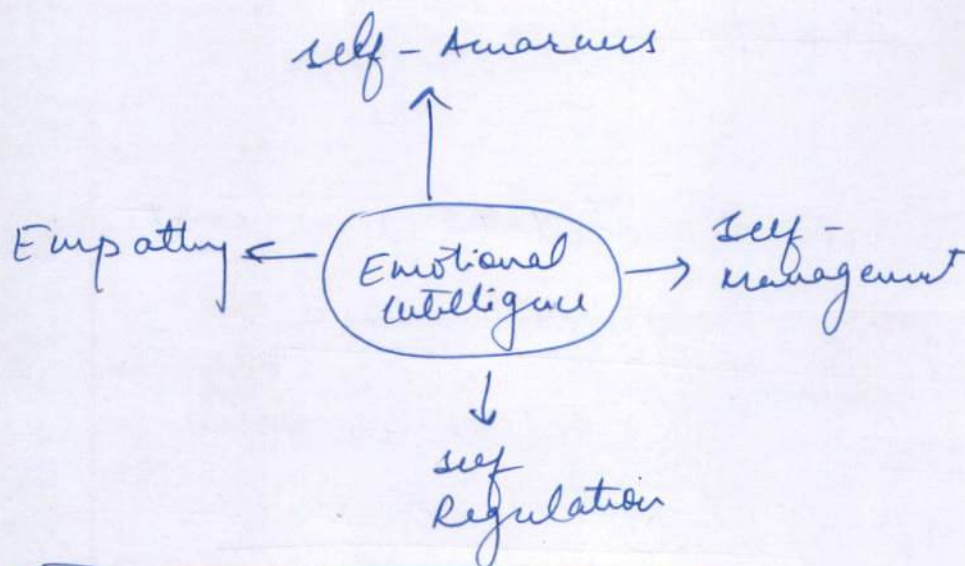 self - Awareness
Empathy
Emotional
Intelligence
self -
Management
self
Regulation